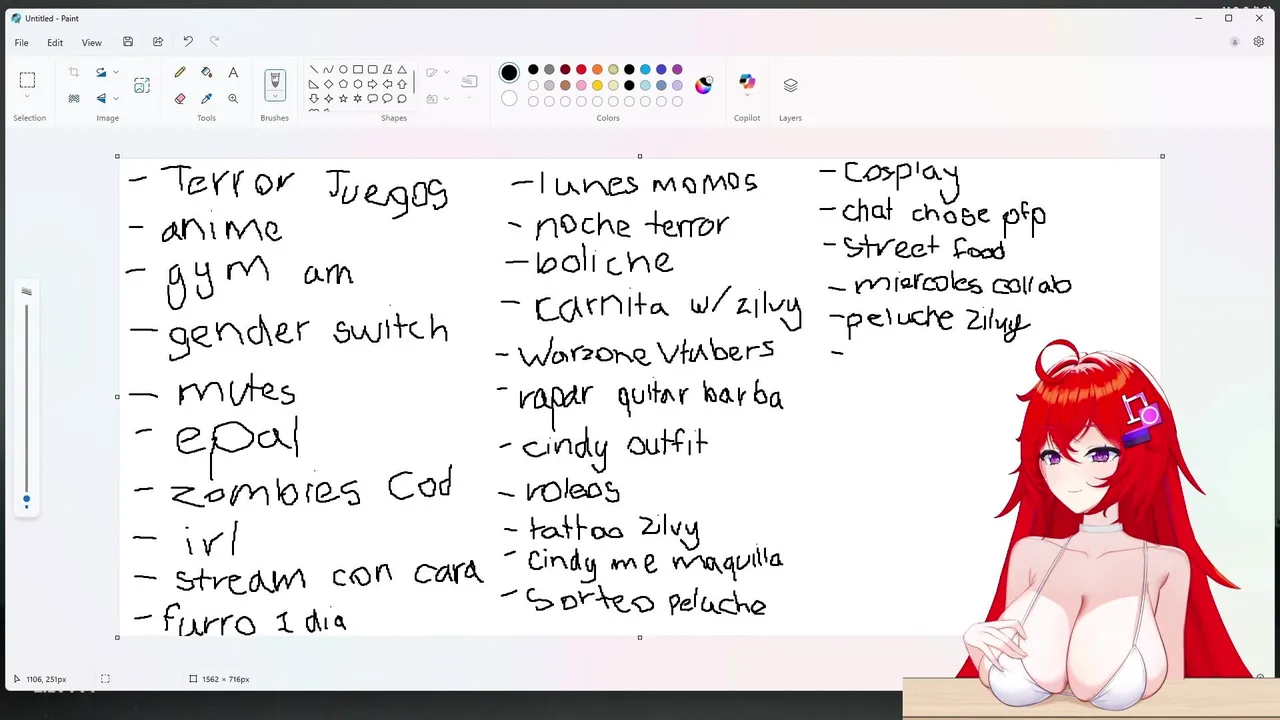 Untitled - Paint
File Edit View
Selection
Image
Tools
Brushes
Shapes
Colors
Copilot
Layers
- Terror Juegos
- anime
- gym am
- gender switch
- mutes
- epal
- zombies Cod
- irl
- stream con cara
- furro 1 dia
- lunes momos
- noche terror
- boliche
- Carnita w/ zilvy
- Warzone Vtubers
- rapar quitar barba
- cindy outfit
- roleos
- tattoo zilvy
- cindy me maquilla
- Sorteo peluche
- Cosplay
- chat chose pfp
- Street food
- miercoles collab
- peluche zilvy
-
1106, 251px
1562 × 716px